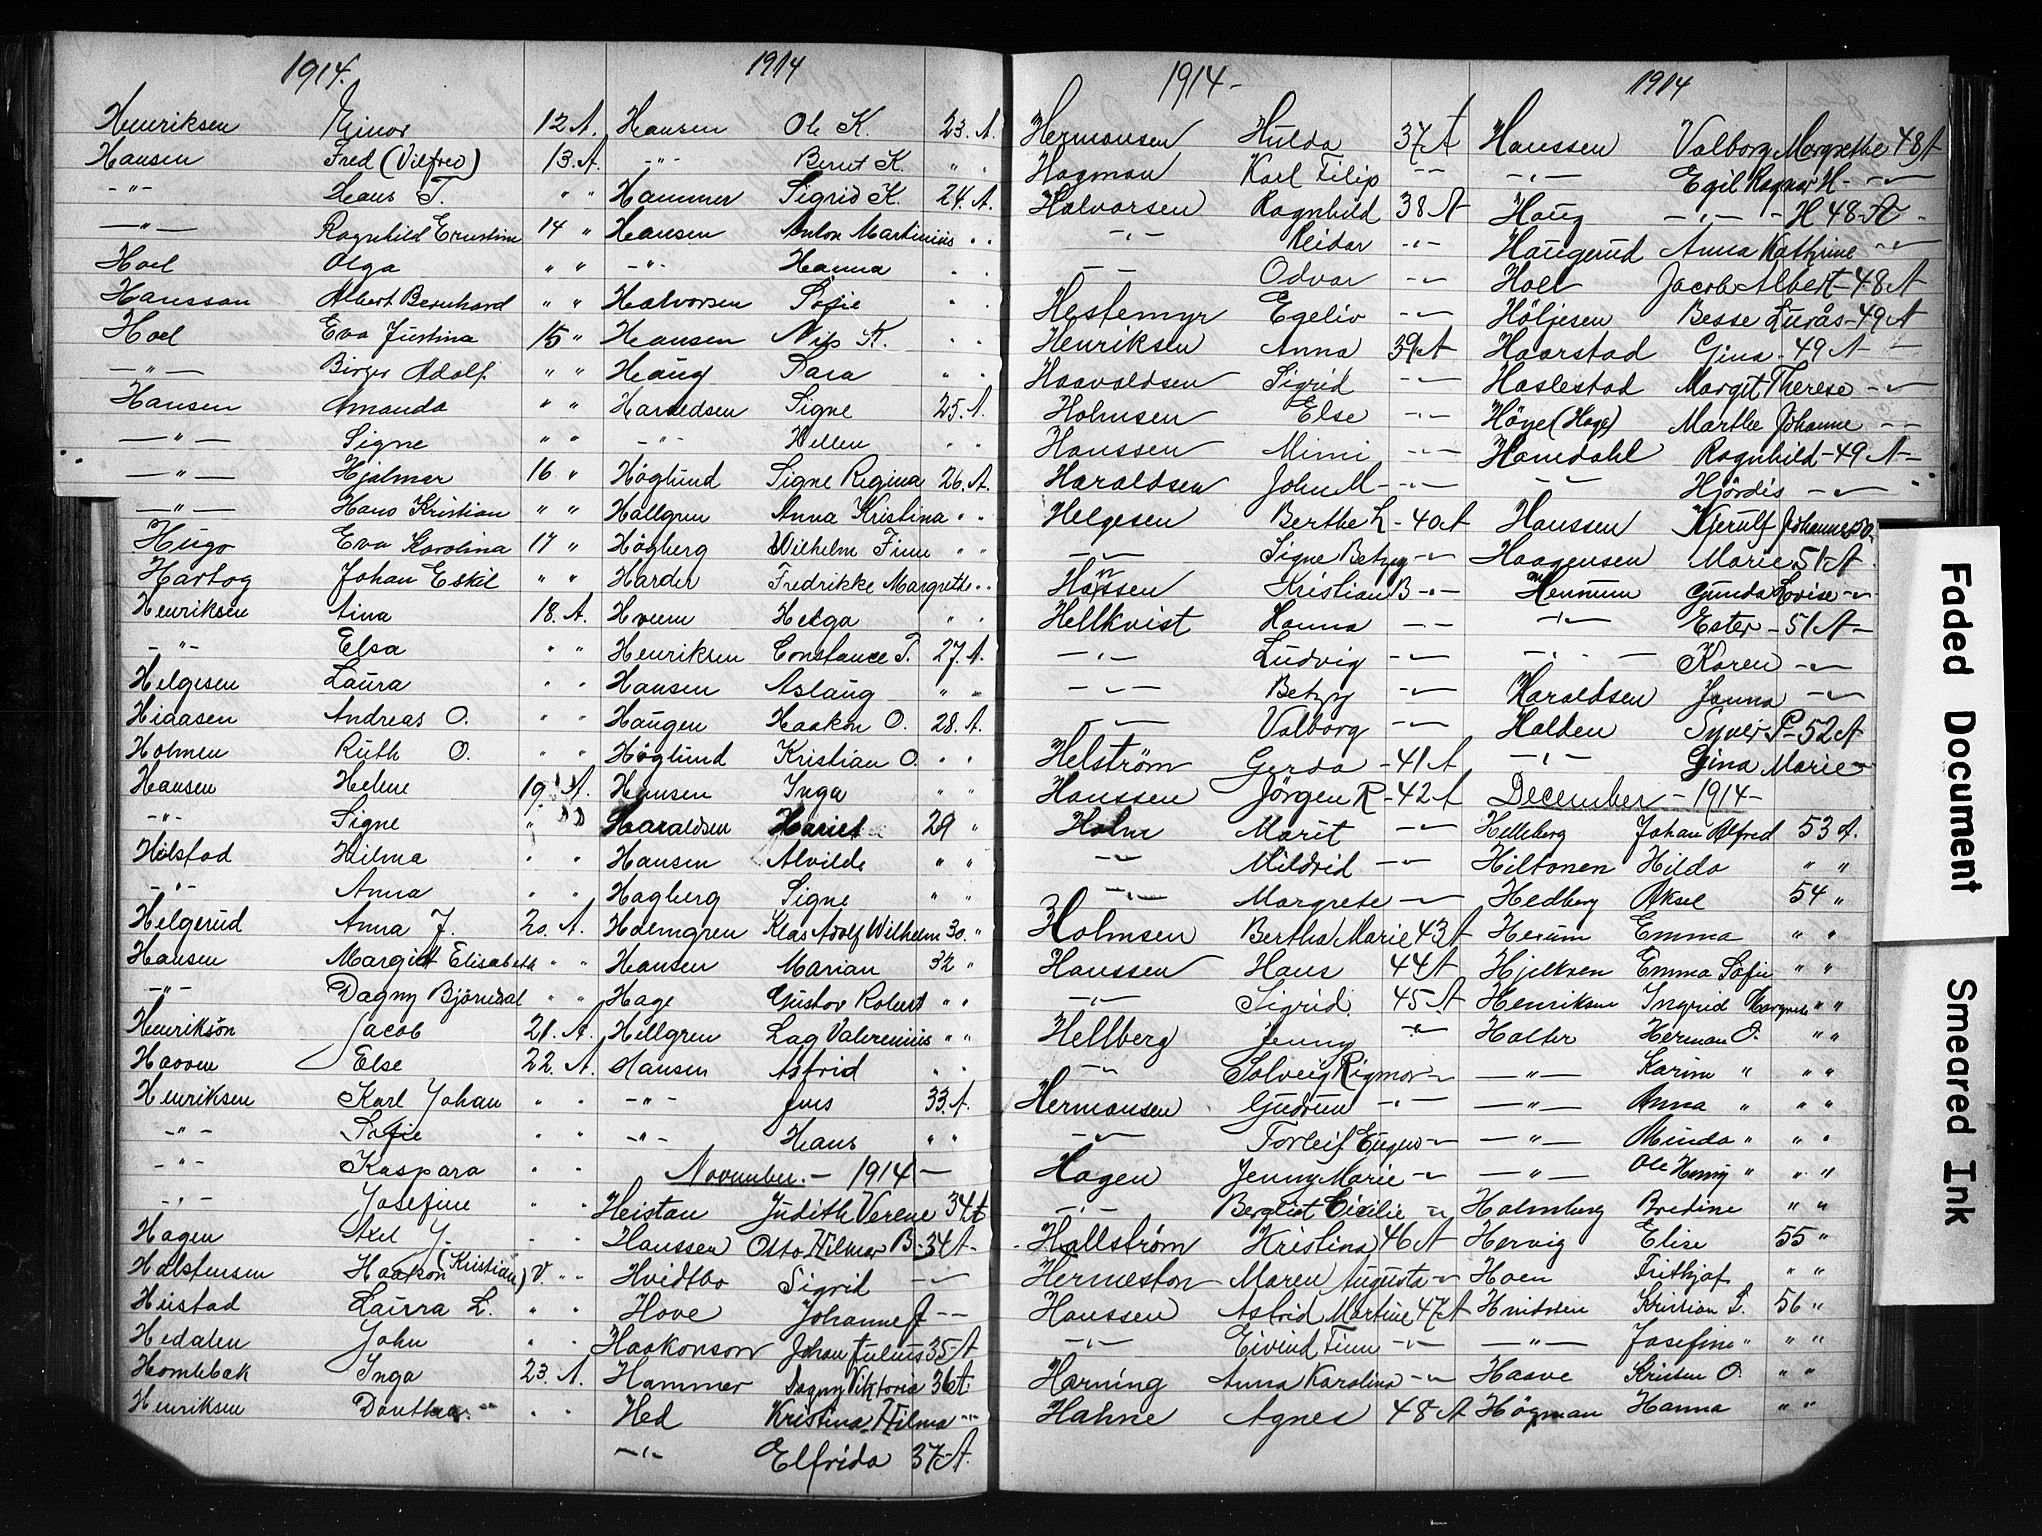 1914.
Henriksen Einor 12 A.
Hansen Fred (Vilfred) 13. A.
-"- Hans T. " "
-"- Ragnhild Ernstine 14 "
Hoel Olga " "
Hansson Albert Bernhard " "
Hoel Eva Justina 15 "
-"- Birger Adolf " "
Hansen Amanda " "
-"- Signe " "
-"- Hjalmar 16 "
-"- Hans Kristian " "
Hugo Eva Karolina 17 "
Hartog Johan Eskil " "
Henriksen Aina 18. A.
-"- Elsa " "
Helgesen Laura " "
Hidasen Andreas O. " "
Holmen Ruth O. " "
Hansen Helene 19. A.
-"- Signe "
Hilstad Hilma " "
-"- Anna " "
Helgerud Anna J. 20. A.
Hansen Margit Elisabeth " "
-"- Dagny Björnedal " "
Henriksön Jacob 21. A.
Haaven Else 22. A.
Henriksen Karl Johan " "
-"- Sofie " "
-"- Kaspara " "
-"- Josefine " "
Hagen Axel J. " "
Halstensen Haakon (Kristian) V. " "
Hustad Laura L. " "
Hedalen John " "
Homlebak Inga 23. A.
Henriksen Dorthea " "
1914
Hansen Ole K. 23. A.
-"- Berut K. " "
Hammer Sigrid K. 24. A.
Hansen Anton Martinius " "
-"- Hanna " "
Halvorsen Sofie " "
Hansen Nils K. " "
Haug Sara " "
Haraldsen Signe 25. A.
-"- Hellen " "
Höglund Signe Regina 26. A.
Hallgren Anna Kristina " "
Högberg Wilhelm Finn " "
Harder Fredrikke Margrethe " "
Hveem Helga " "
Henriksen Constance T. 27. A.
Hansen Aslaug " "
Haugen Haakon O. 28. A.
Höglund Kristian O. " "
Hansen Inga " "
Haraldsen Hariet 29 "
Hansen Alvilde " "
Hagberg Signe " "
Holmgren Klas Adolf Wilhelm 30. "
Hansen Marian 32 "
Hage Gustov Robert " "
Hillgren Lag Valerenius " "
Hansen Astrid " "
-"- Jens 33. A.
-"- Hans " "
November. - 1914 -
Heistan Judith Verene 34 A
Hanssen Otto Hilmar B. 34 A -
Hvidtbo Sigrid -"-
Hove Johanne J --
Haakonson Johan Julius 35 A
Hammer Dagny Viktoria 36 A
Hed Kristina Hilma -"-
-"- Elfrida 37 A.
1914 -
Hermansen Hulda 37 A
Hagman Karl Filip --
Halvorsen Ragnhild 38 A
-"- Reidar -"-
-- Odvar -"-
Hestemyr Egeliv -"-
Henriksen Anna 39 A
Haavaldsen Sigrid -"-
Holmsen Else -"-
Hanssen Mimi -"-
Haraldsen John M -"-
Helgesen Berthe L - 40 A
-"- Signe Betzy -"-
Hanssen Kristian B -"-
Hellkvist Hanna --
-"- Ludvig -"-
-"- Betzy -"-
-"- Valborg -"-
Helström Gerda - 41 A
Hanssen Jörgen R - 42 A
Holm Marit -"-
-"- Mildrid -"-
-"- Margrete -"-
Holmsen Bertha Marie 43 A
Hanssen Hans 44 A
-"- Sigrid. 45 A
Hellberg Jenny -"-
-"- Solveig Rigmor -"-
Hermansen Gudrun -"-
-"- Torleif Eugen -"-
Hagen Jenny Marie -"-
-"- Bergliot Cicilie -"-
Hallström Kristina 46 A
Hermeston Maren Augusta -"-
Hanssen Astrid Martine 47 A
-"- Eivind Finn -"-
Harning Anna Karolina -"-
Hahne Agnes 48 A
1914
Hanssen Valborg Margrethe 48 A
-"- Egil Ragnar H - -"-
Haug -"- - H 48 A -
Haugerud Anna Kathrine -"-
Holt Jacob Albert - 48 A
Höljesen Besse Lurås - 49 A
Haarstad Gina - 49 A -
Haslestad Margit Therese -"-
Höye (Hoge) Marthe Johanne --
Hamdahl Ragnhild - 49 A -
-- Hjördis -"-
Hanssen Kjerulf Johannes 50.
Haagensen Marie 51 A
Hennum Gunda Lovise -"-
-"- Ester - 51 A -
-"- Karen -"-
Haraldsen Janna -"-
Halden Syver P - 52 A
-"- Gina Marie
December - 1914 -
Helleberg Johan Alfred 53 A.
Hiltonen Hilda " "
Hedberg Aksel 54 "
Herum Emma " "
Hjelksen Emma Sofie " "
Henriksen Ingrid Margrete " "
Halter Herman O. " "
-"- Karine " " "
-"- Anna " " "
-"- Minda " " "
-"- Ole Henry " " "
Holmberg Bredine " "
Hervig Elise 55 "
Hoen Frithjof " "
Hnidsten Kristian S. 56 "
-"- Josefine " " "
Hasve Kristen O. " "
Högman Hanna " "
Faded Document
Smeared Ink